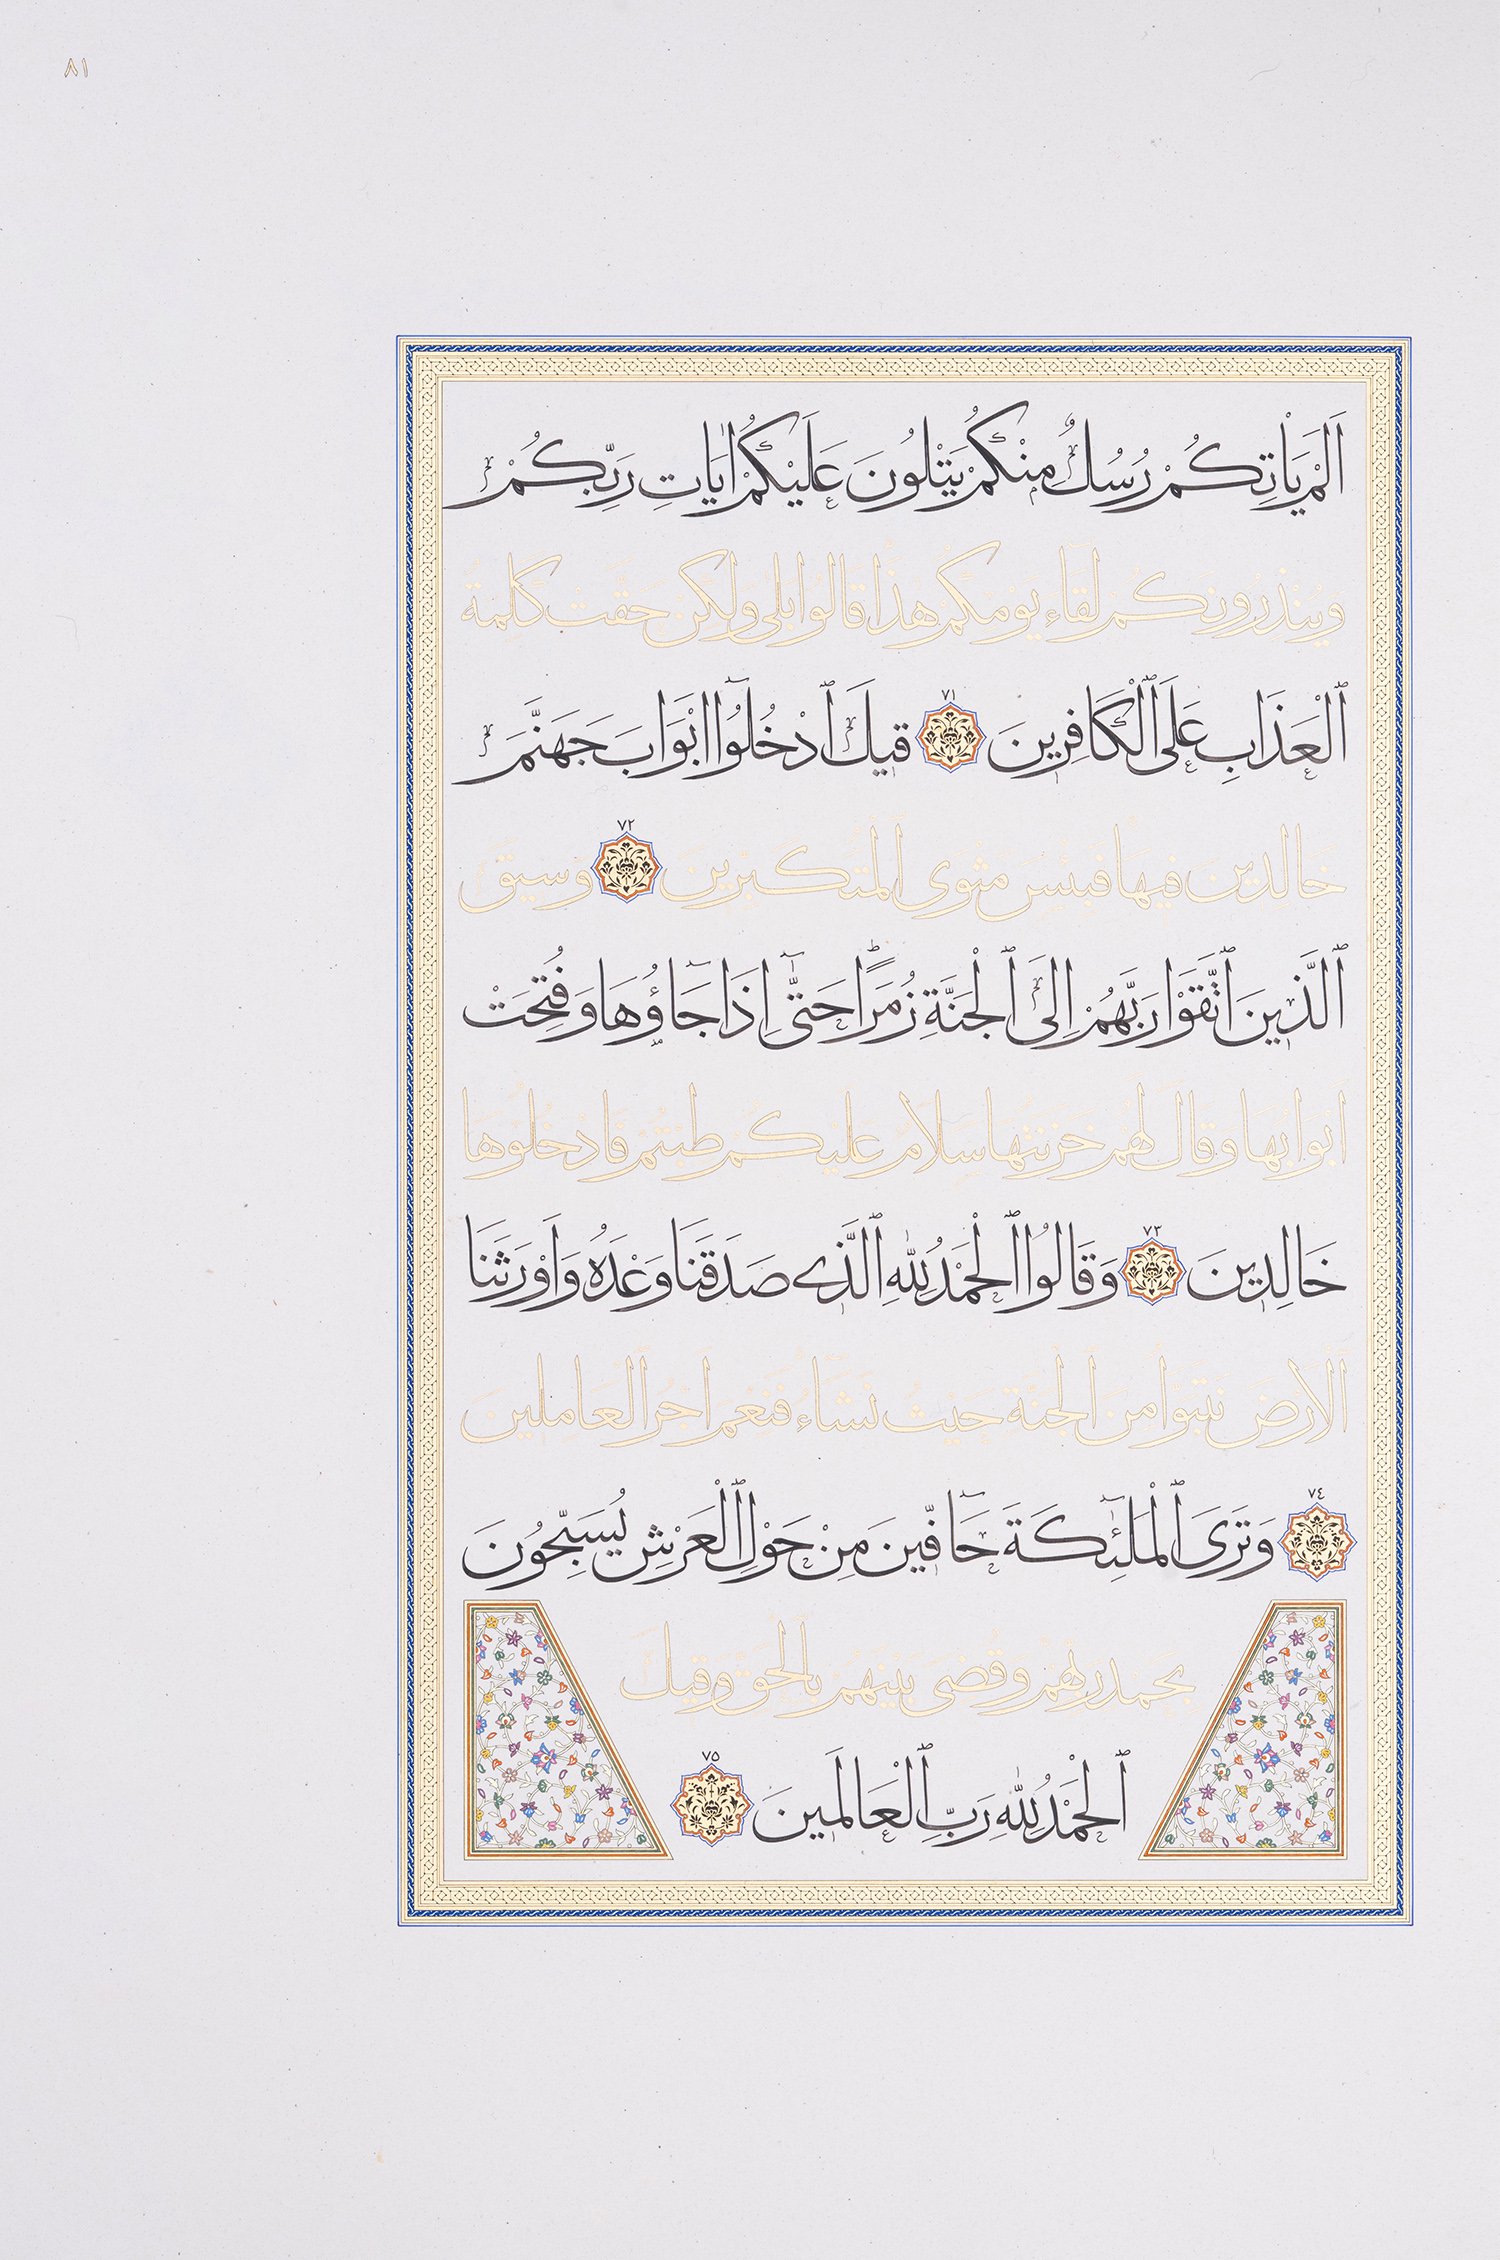 ٨١
اَلَمْ يَاْتِكُمْ رُسُلٌ مِنْكُمْ يَتْلُونَ عَلَيْكُمْ اٰيَاتِ رَبِّكُمْ
وَيُنْذِرُونَكُمْ لِقَٓاءَ يَوْمِكُمْ هٰذَا قَالُوا بَلٰى وَلٰكِنْ حَقَّتْ كَلِمَةُ
ٱلْعَذَابِ عَلَى ٱلْكَافِرِينَ ٧١ قِيلَ ٱدْخُلُٓوا اَبْوَابَ جَهَنَّمَ
خَالِدِينَ فِيهَا فَبِئْسَ مَثْوَى ٱلْمُتَكَبِّرِينَ ٧٢ وَسِيقَ
ٱلَّذِينَ ٱتَّقَوْا رَبَّهُمْ اِلَى ٱلْجَنَّةِ زُمَرًا حَتّٰٓى اِذَا جَٓاؤُهَا وَفُتِحَتْ
اَبْوَابُهَا وَقَالَ لَهُمْ خَزَنَتُهَا سَلَامٌ عَلَيْكُمْ طِبْتُمْ فَادْخُلُوهَا
خَالِدِينَ ٧٣ وَقَالُوا ٱلْحَمْدُ لِلّٰهِ ٱلَّذِي صَدَقَنَا وَعْدَهُ وَاَوْرَثَنَا
ٱلْاَرْضَ نَتَبَوَّاُ مِنَ ٱلْجَنَّةِ حَيْثُ نَشَٓاءُ فَنِعْمَ اَجْرُ ٱلْعَامِلِينَ
٧٤ وَتَرَى ٱلْمَلٰٓئِكَةَ حَٓافِّينَ مِنْ حَوْلِ ٱلْعَرْشِ يُسَبِّحُونَ
بِحَمْدِ رَبِّهِمْ وَقُضِىَ بَيْنَهُمْ بِٱلْحَقِّ وَقِيلَ
ٱلْحَمْدُ لِلّٰهِ رَبِّ ٱلْعَالَمِينَ ٧٥